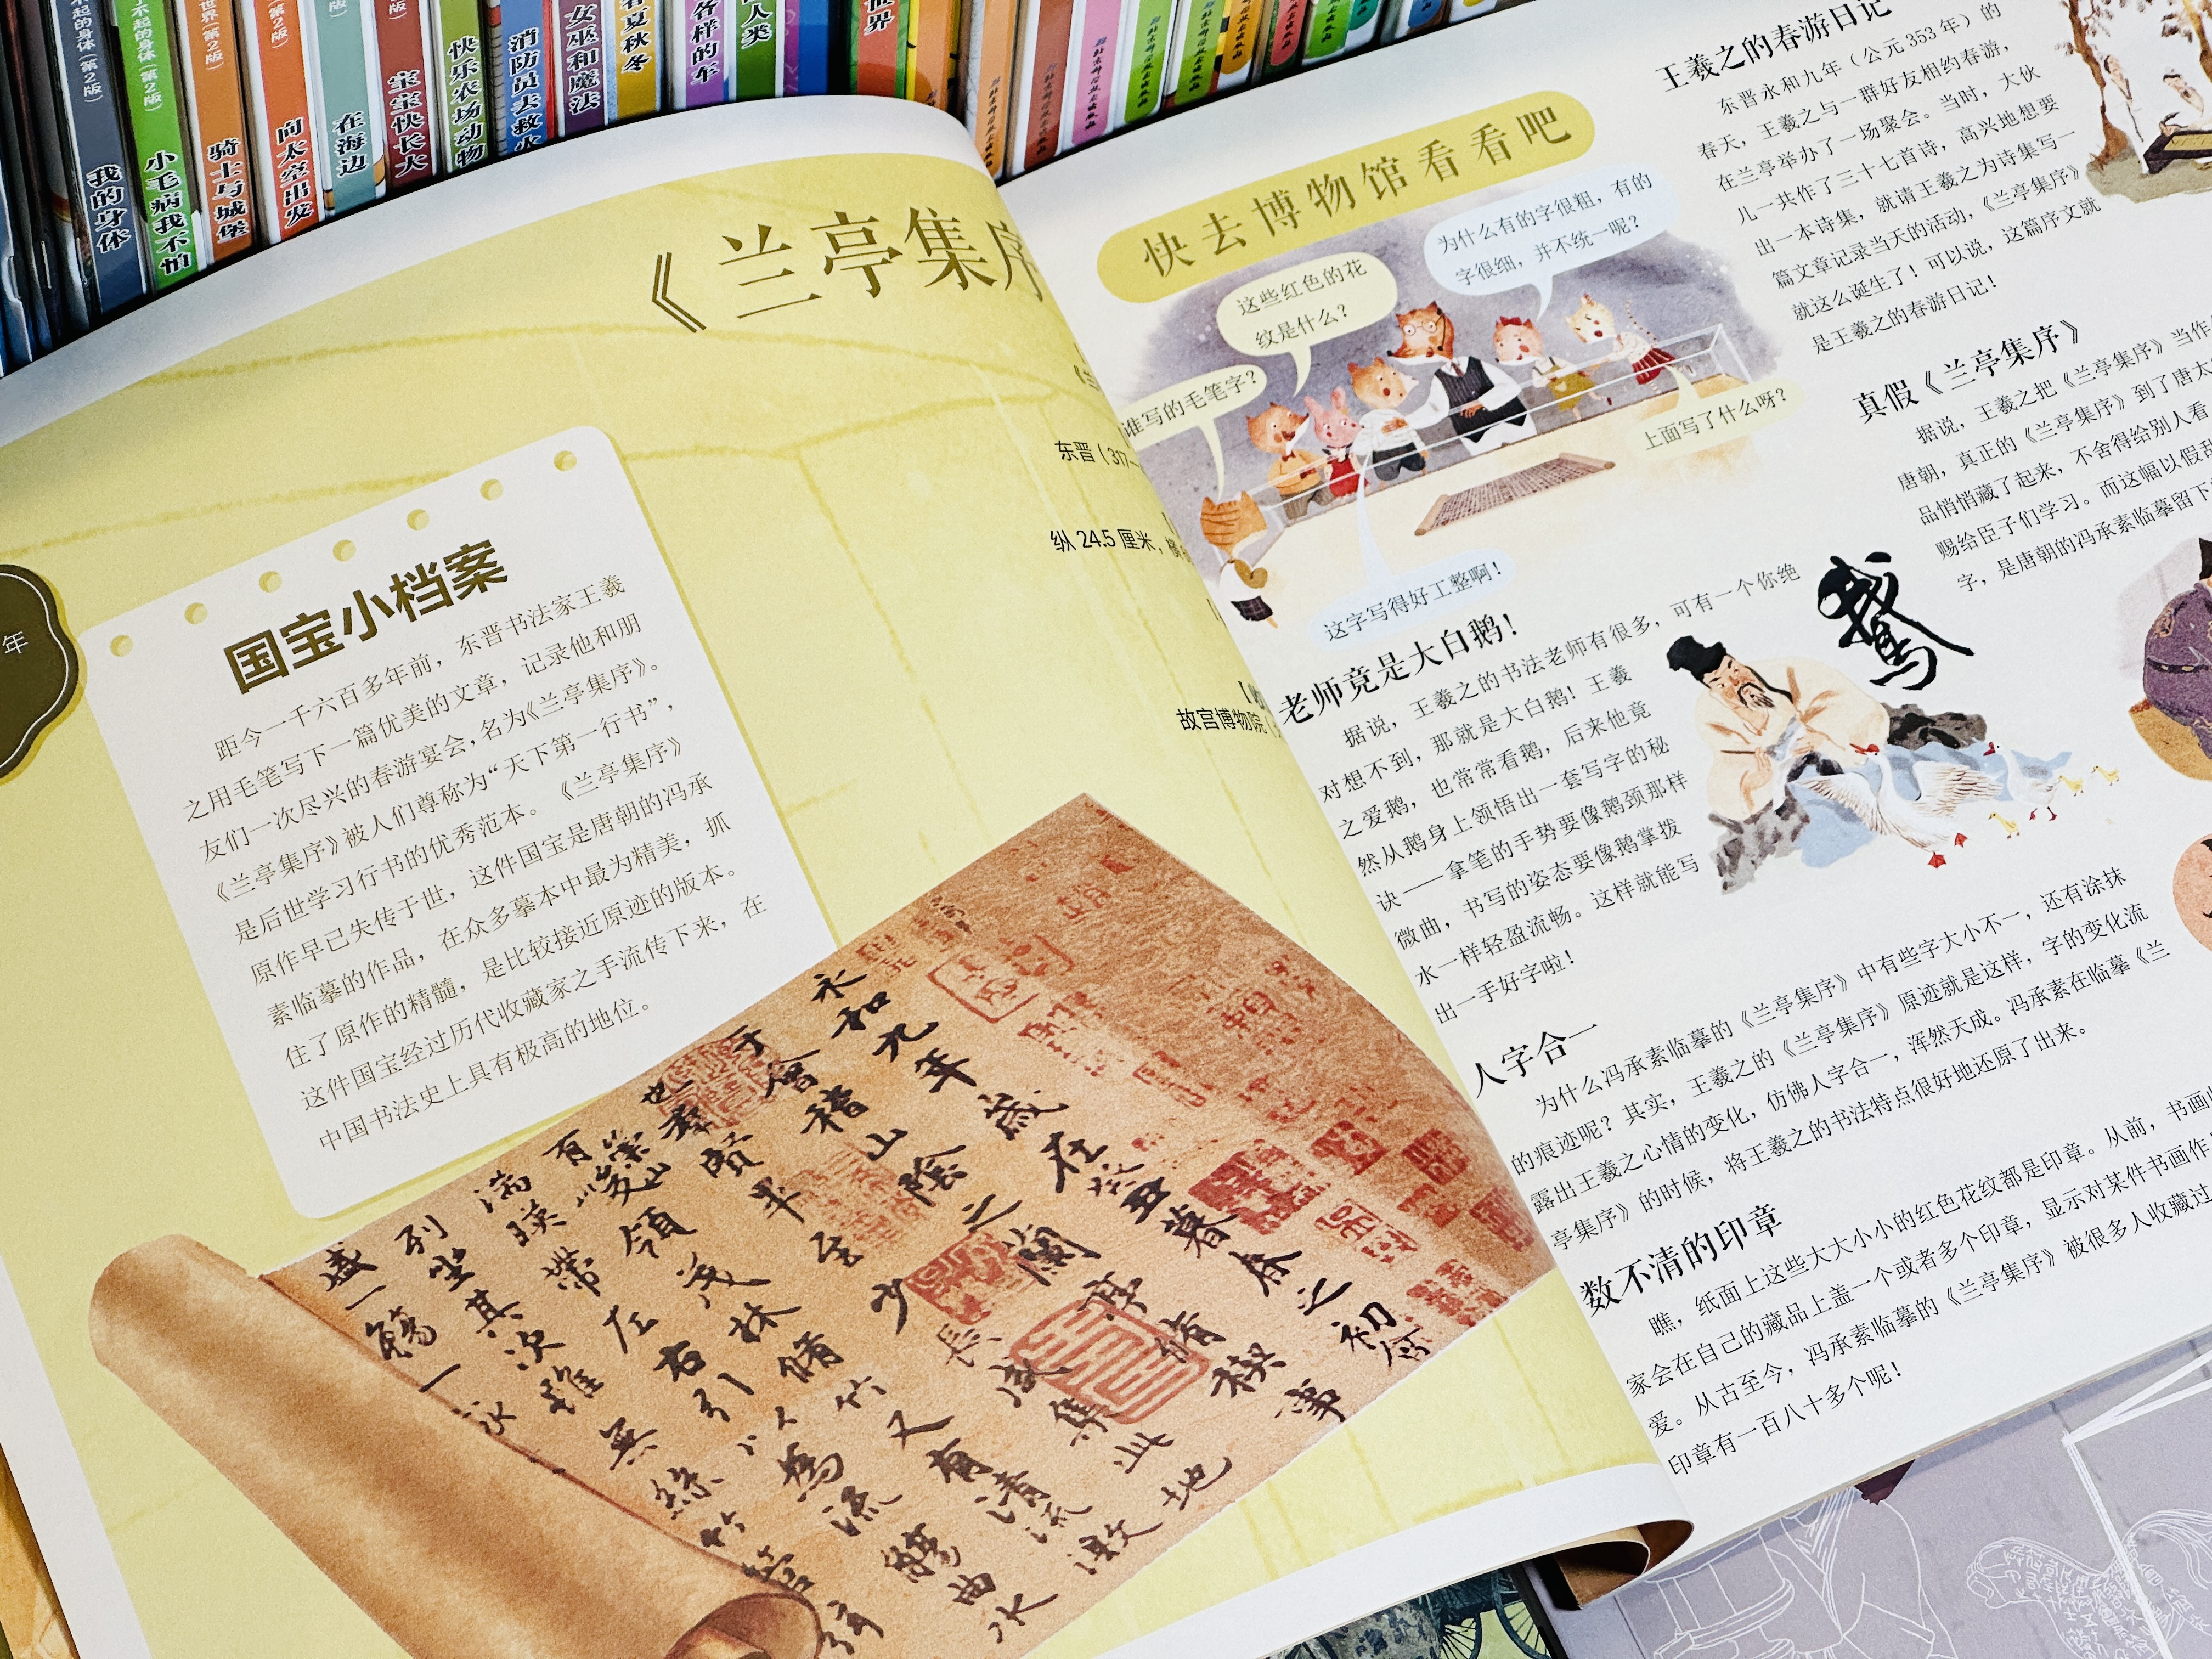 我的身体
不起的身体（第2版）
小毛病我不怕
不起的身体（第2版）
骑士与城堡
世界（第2版）
向太空出发
（第2版）
在海边
版）
宝宝快长大
快乐农场动物
消防员去救火
女巫和魔法
春夏秋冬
各样的车
人类
世界
《兰亭集序
东晋（317—
纵 24.5 厘米，横
故宫博物院
年
国宝小档案
距今一千六百多年前，东晋书法家王羲
之用毛笔写下一篇优美的文章，记录他和朋
友们一次尽兴的春游宴会，名为《兰亭集序》。
《兰亭集序》被人们尊称为“天下第一行书”，
是后世学习行书的优秀范本。《兰亭集序》
原作早已失传于世，这件国宝是唐朝的冯承
素临摹的作品，在众多摹本中最为精美，抓
住了原作的精髓，是比较接近原迹的版本。
这件国宝经过历代收藏家之手流传下来，在
中国书法史上具有极高的地位。
永和九年歲在癸丑暮春之初會
于會稽山陰之蘭亭脩禊事
也羣賢畢至少長咸集此地
有崇山峻領茂林脩竹又有清流激
湍暎帶左右引以為流觴曲水
列坐其次雖無絲竹管弦
盛一觴一詠
快去博物馆看看吧
谁写的毛笔字？
这些红色的花
纹是什么？
为什么有的字很粗，有的
字很细，并不统一呢？
上面写了什么呀？
这字写得好工整啊！
老师竟是大白鹅！
据说，王羲之的书法老师有很多，可有一个你绝
对想不到，那就是大白鹅！王羲
之爱鹅，也常常看鹅，后来他竟
然从鹅身上领悟出一套写字的秘
诀——拿笔的手势要像鹅颈那样
微曲，书写的姿态要像鹅掌拨
水一样轻盈流畅。这样就能写
出一手好字啦！
鵞
人字合一
为什么冯承素临摹的《兰亭集序》中有些字大小不一，还有涂抹
的痕迹呢？其实，王羲之的《兰亭集序》原迹就是这样，字的变化流
露出王羲之心情的变化，仿佛人字合一，浑然天成。冯承素在临摹《兰
亭集序》的时候，将王羲之的书法特点很好地还原了出来。
数不清的印章
瞧，纸面上这些大大小小的红色花纹都是印章。从前，书画收
家会在自己的藏品上盖一个或者多个印章，显示对某件书画作
爱。从古至今，冯承素临摹的《兰亭集序》被很多人收藏过
印章有一百八十多个呢！
王羲之的春游日记
东晋永和九年（公元 353 年）的
春天，王羲之与一群好友相约春游，
在兰亭举办了一场聚会。当时，大伙
儿一共作了三十七首诗，高兴地想要
出一本诗集，就请王羲之为诗集写一
篇文章记录当天的活动，《兰亭集序》
就这么诞生了！可以说，这篇序文就
是王羲之的春游日记！
真假《兰亭集序》
据说，王羲之把《兰亭集序》当作
唐朝，真正的《兰亭集序》到了唐太
品悄悄藏了起来，不舍得给别人看
赐给臣子们学习。而这幅以假乱
字，是唐朝的冯承素临摹留下